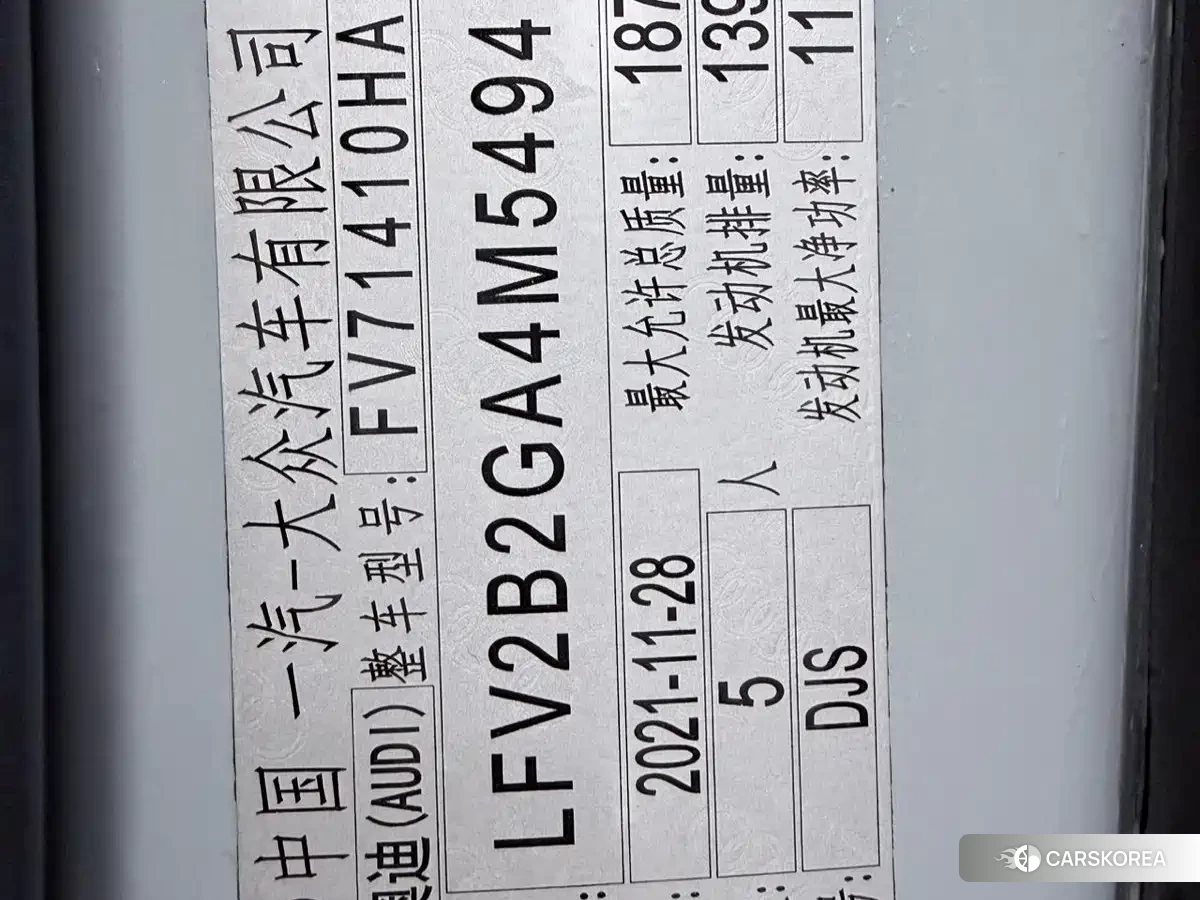 中国 一汽-大众汽车有限公司
奥迪(AUDI) 整车型号: FV71410HA
LFV2B2GA4M5494
2021-11-28 最大允许总质量: 187
5 人 发动机排量: 139
号: DJS 发动机最大净功率: 11
CARSKOREA